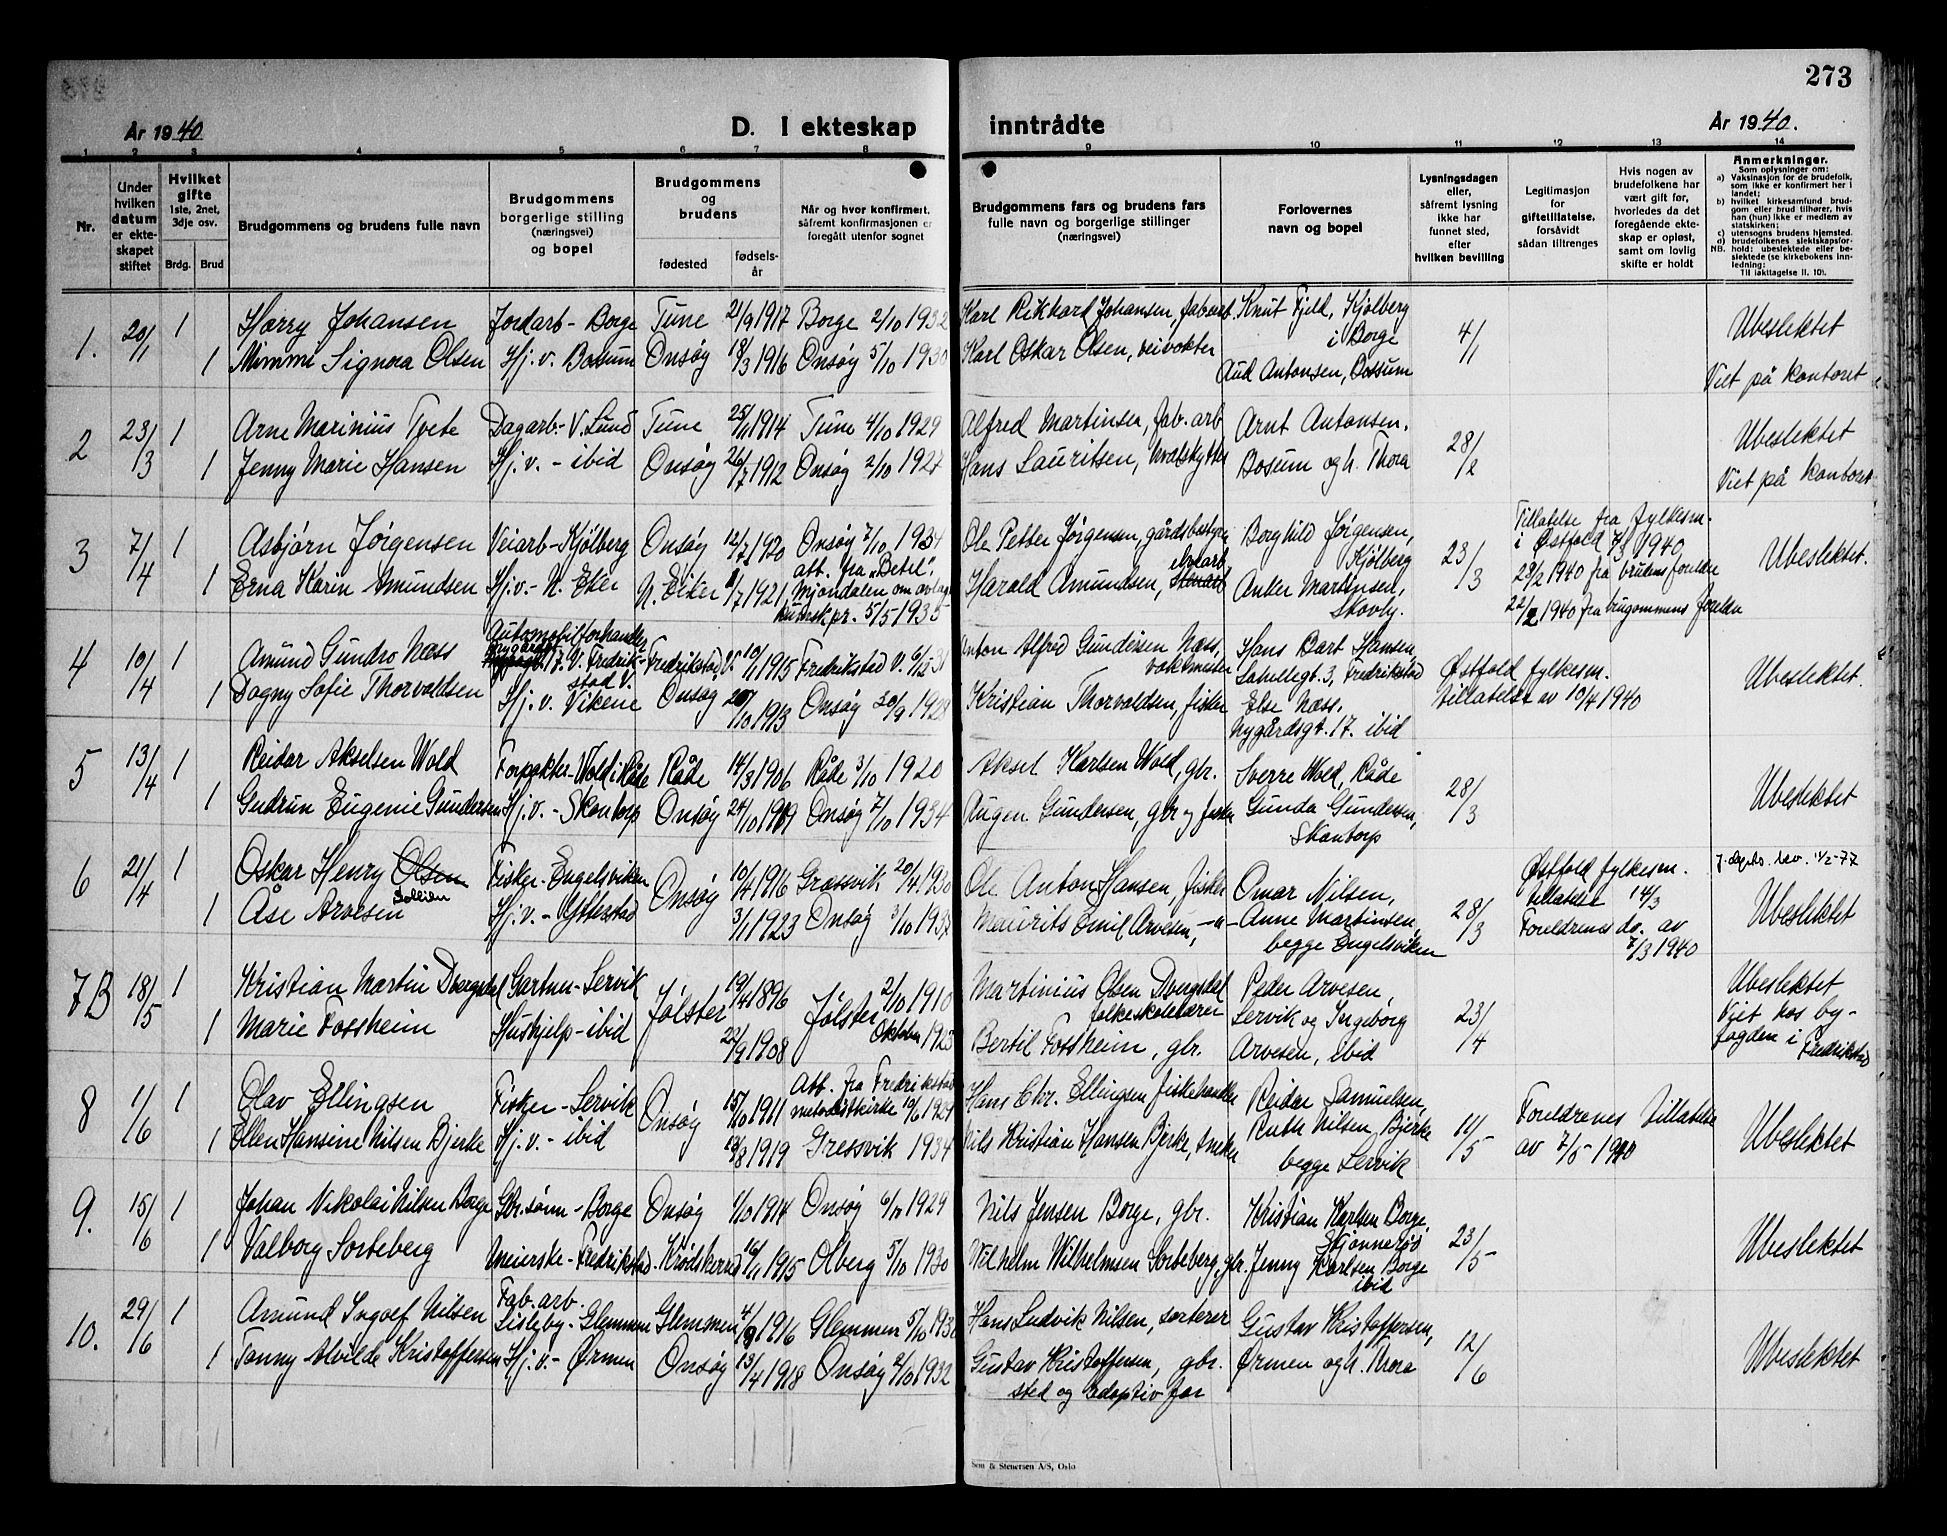 273
År 1940
D. I ekteskap
inntrådte
År 1940.
1 2 3 4 5 6 7 8 9 10 11 12 13 14
Nr.
Under hvilken datum er ekteskapet stiftet
Hvilket gifte
1ste, 2net, 3dje osv.
Brdg. Brud
Brudgommens og brudens fulle navn
Brudgommens borgerlige stilling (næringsvei) og bopel
Brudgommens og brudens
fødested
fødselsår
Når og hvor konfirmert, såfremt konfirmasjonen er foregått utenfor sognet
Brudgommens fars og brudens fars fulle navn og borgerlige stillinger (næringsvei)
Forlovernes navn og bopel
Lysningsdagen eller, såfremt lysning ikke har funnet sted, efter hvilken bevilling
Legitimasjon for giftetillatelse, forsåvidt sådan tiltrenges
Hvis nogen av brudefolkene har vært gift før, hvorledes da det foregående ekteskap er opløst, samt om lovlig skifte er holdt
Anmerkninger.
Som oplysninger om:
a) Vaksinasjon for de brudefolk, som ikke er konfirmert her i landet;
b) hvilket kirkesamfund brudgom eller brud tilhører, hvis han (hun) ikke er medlem av statskirken;
c) utensogns brudens hjemsted.
d) brudefolkenes slektskapsforhold: ubeslektede eller beslektede (se kirkebokens innledning:
NB.
Til iakttagelse II. 10).
1. 20/1 1 Harry Johansen Jordarb - Borge Tune 21/9 1917 Borge 2/10 1932 Karl Rikhard Johansen, fabarb. Knut Fjeld, Kjølberg i Borge 4/1 Ubeslektet
1 Mimmi Signora Olsen Hj. v. Bossum Onsøy 18/3 1916 Onsøy 5/10 1930 Karl Oskar Olsen, veivokter Aud Antonsen, Bossum Viet på kontoret
2 23/3 1 Arne Marinius Tvete Dagarb.- V. Lund Tune 25/11 1914 Tune 4/10 1929 Alfred Martinsen, fab. arb Arnt Antonsen. 28/2 Ubeslektet
1 Jenny Marie Hansen Hj. v. - ibid Onsøy 26/7 1912 Onsøy 2/10 1927 Hans Lauritsen, hvalskytter Bosum og h. Thora Viet på kontoret
3 7/4 1 Asbjørn Jørgensen Veiarb - Kjølberg Onsøy 12/7 1920 Onsøy 7/10 1934 Ole Petter Jørgensen, gårdsbestyrer Borghild Jørgensen, Kjølberg 23/3 Tillatelse fra fylkesm. i Østfold 7/3 1940 Ubeslektet.
1 Erna Karin Amundsen Hj.v.- N. Eker N. Eiker 1/7 1921 att. fra "Betel", Mjøndalen om avlagt kunnsk.pr. 5/5 1935 Harald Amundsen, Anker Martinsen, Skovby. 29/2 1940 fra brudens foreldre
22/2 1940 fra brugommens foreldre
4 10/4 1 Amund Gundro Næss Automobilforhandler Nygårdsgt 17. V. Fredrikstad V. Fredrikstad V. 10/1 1915 Fredrikstad V. 6/12 31 Anton Alfred Gundersen Næss, vaktmester Hans Bart Hansen, Labellegt. 3, Fredrikstad Østfold fylkesm. tillatelse av 10/4 1940 Ubeslektet.
1 Dagny Sofie Thorvaldsen Hj. v. Vikene Onsøy 20/10 1913 Onsøy 30/9 1928 Kristian Thorvaldsen, fisker Else Næss. Nygårdsgt. 17. ibid
5 13/4 1 Reidar Akselsen Wold Forpakter - Wold i Råde Råde 14/3 1906 Råde 3/10 1920 Aksel Karlsen Wold, gbr. Sverre Wold, Råde 28/3 Ubeslektet
1 Gudrun Eugenie Gundersen Hj. v. - Skantorp Onsøy 24/10 1919 Onsøy 7/10 1934 Augen Gundersen, gbr og fisker Gunda Gundersen, Skantorp
6 21/4 1 Oskar Henry Olsen Sollien Fisker - Engelsviken Onsøy 10/4 1916 Gressvik 20/4 1930 Ole Anton Hansen, fisker Omar Nilsen, 28/3 Østfold fylkesm. tillatelse 14/3 J. depts. bev. 11/2-77
1 Åse Arvesen Hj. v. - Ytterstad 3/1 1923 Onsøy 3/10 1937 Maurits Emil Arvesen, -"- Anne Martinsen, begge Engelsviken Foreldrenes do. av 7/3 1940 Ubeslektet
7B 18/5 1 Kristian Martin Dvergsdal Gartner - Lervik Jølster 19/4 1896 Jølster 2/10 1910 Martinius Olsen Dvergsdal folkeskolelærer Peder Arvesen, Lervik og Ingeborg 23/4 Ubeslektet
1 Marie Fossheim Hushjelp - ibid 22/9 1908 Oktober 1923 Bertil Fossheim, gbr. Arvesen, ibid Viet hos byfogden i Fredrikstad
8 1/6 1 Olav Ellingsen Fisker - Lervik Onsøy 15/10 1911 Att. fra Fredrikstad metodistkirke 10/6 1927 Hans Chr. Ellingsen fiskehandler Reidar Samuelsen, 11/5 Foreldrenes tillatelse av 7/5 1940 Ubeslektet
1 Ellen Hansine Nilsen Bjerke Hj. v. - ibid 13/8 1919 Gressvik 1934 Nils Kristian Hansen Bjerke, snekker Ruth Nilsen, Bjerke begge Lervik
9. 15/6 1 Johan Nikolai Nilsen Borge Gbr. sønn - Borge Onsøy 1/10 1914 Onsøy 6/10 1929 Nils Jensen Borge, gbr. Kristian Karlsen Borge, Skjønnerød 23/5 Ubeslektet
1 Valborg Sorteberg Meierske - Fredrikstad. Krødsherred 16/11 1915 Olberg 5/10 1930 Vilhelm Wilhelmsen Sorteberg, gbr. Jenny Karlsen Borge ibid
10. 29/6 1 Amund Ingolf Nilsen Fab. arb. Lisleby - Glemmen Glemmen 4/9 1916 Glemmen 5/10 1930 Hans Ludvik Nilsen, sorterer Gustav Kristoffersen, 12/6 Ubeslektet
1 Tanny Alvilde Kristoffersen Hj. v. - Ørmen Onsøy 13/4 1918 Onsøy 2/10 1932 Gustav Kristoffersen, gbr. sted og adoptiv far Ørmen og h. Thora
Sem & Stenersen A/S, Oslo